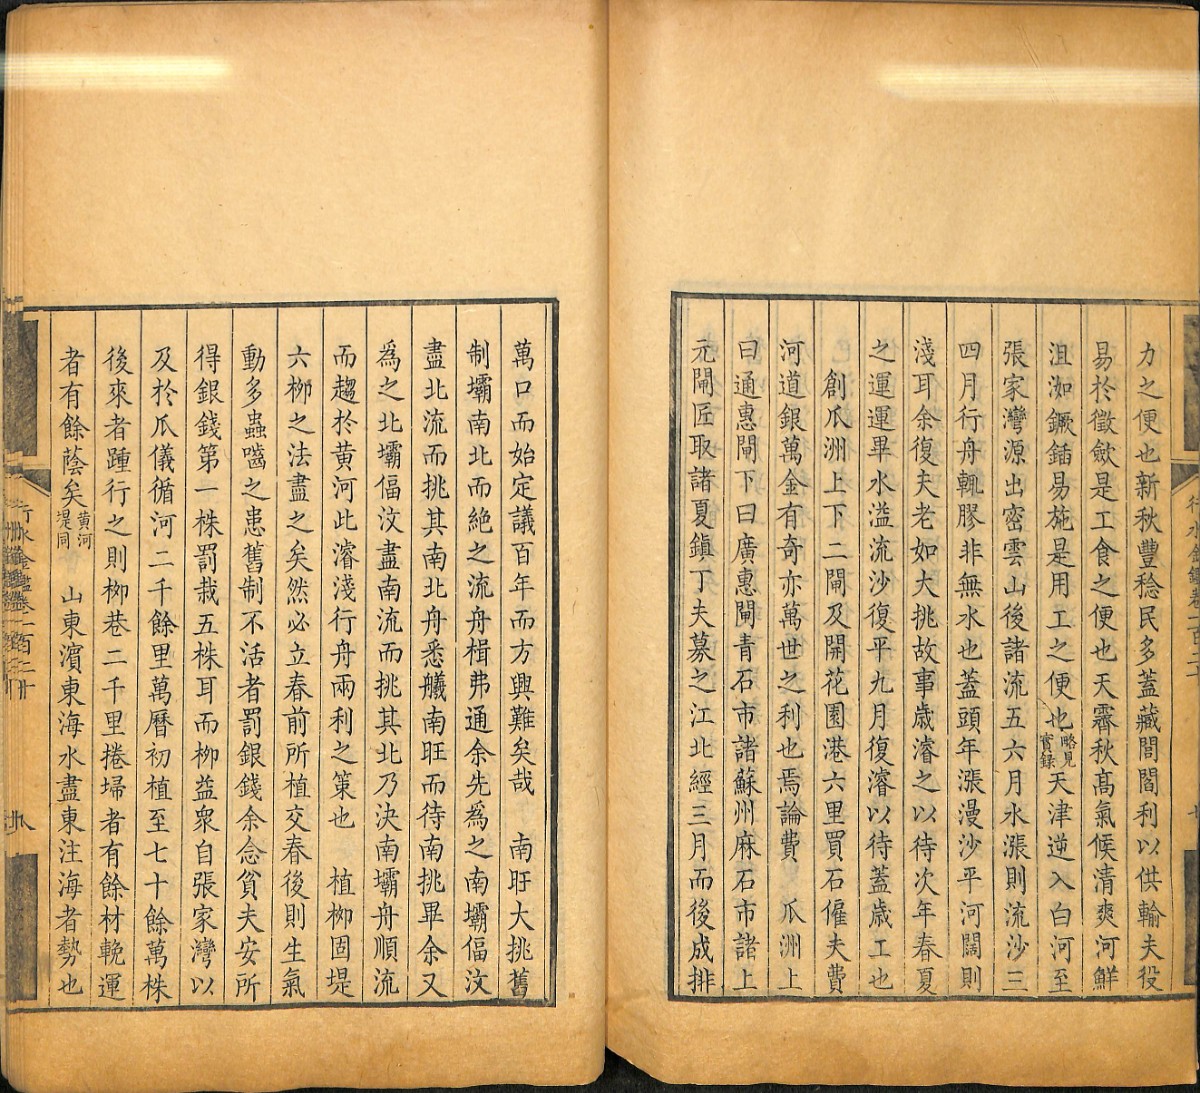 力之便也新秋豐稔民多蓋藏閭閻利以供輸夫役
易於徵歛是工食之便也天霽秋髙氣候清爽河鮮
沮洳鐝鍤易施是用工之便也略見實錄天津逆入白河至
張家灣源出密雲山後諸流五六月水漲則流沙三
四月行舟輒膠非無水也蓋頭年漲漫沙平河闊則
淺耳余復夫老如大挑故事歲濬之以待次年春夏
之運運畢水溢流沙復平九月復濬以待蓋歲工也
創瓜洲上下二閘及開花園港六里買石僱夫費
河道銀萬金有奇亦萬世之利也焉論費　瓜洲上
曰通惠閘下曰廣惠閘青石市諸蘇州麻石市諸上
元閘匠取諸夏鎮丁夫募之江北經三月而後成排
萬口而始定議百年而方興難矣哉　南旺大挑舊
制壩南北而絶之流舟楫弗通余先爲之南壩偪汶
盡北流而挑其南北舟悉艤南旺而待南挑畢余又
爲之北壩偪汶盡南流而挑其北乃決南壩舟順流
而趨於黄河此濬淺行舟兩利之策也　植栁固堤
六栁之法盡之矣然必立春前所植交春後則生氣
動多蟲嚙之患舊制不活者罰銀錢余念貧夫安所
得銀錢第一株罰栽五株耳而栁益衆自張家灣以
及於瓜儀循河二千餘里萬曆初植至七十餘萬株
後來者踵行之則栁巷二千里捲埽者有餘材輓運
者有餘蔭矣黄河堤同　山東濱東海水盡東注海者勢也